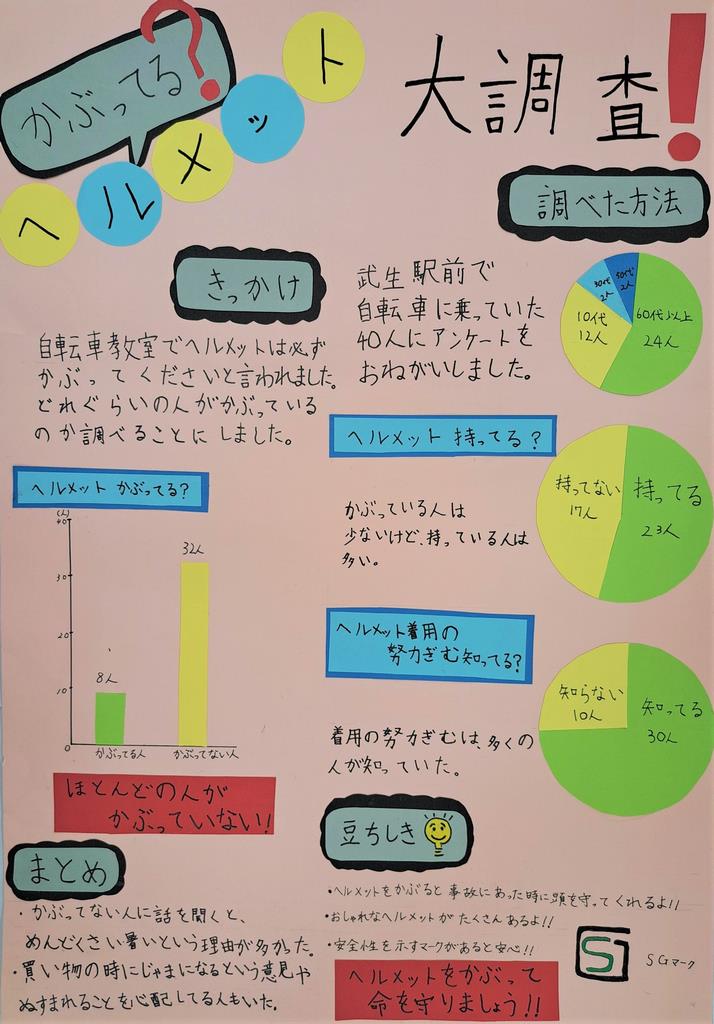 かぶってる?
ヘルメット
大調査!
きっかけ
自転車教室でヘルメットは必ず
かぶってくださいと言われました。
どれぐらいの人がかぶっている
のか調べることにしました。
調べた方法
武生駅前で
自転車に乗っていた
40人にアンケートを
おねがいしました。
60代以上
24人
10代
12人
30代
2人
50代
2人
ヘルメット かぶってる?
(人)
40
30
20
10
0
8人
32人
かぶってる人
かぶってない人
ほとんどの人が
かぶっていない!
ヘルメット 持ってる?
かぶっている人は
少ないけど、持っている人は
多い。
持ってない
17人
持ってる
23人
ヘルメット着用の
努力ぎむ知ってる?
着用の努力ぎむは、多くの
人が知っていた。
知らない
10人
知ってる
30人
まとめ
・かぶってない人に話を聞くと、
めんどくさい暑いという理由が多かった。
・買い物の時にじゃまになるという意見や
ぬすまれることを心配してる人もいた。
豆ちしき
・ヘルメットをかぶると事故にあった時に頭を守ってくれるよ!!
・おしゃれなヘルメットがたくさんあるよ!!
・安全性を示すマークがあると安心!!
SG
SGマーク
ヘルメットをかぶって
命を守りましょう!!